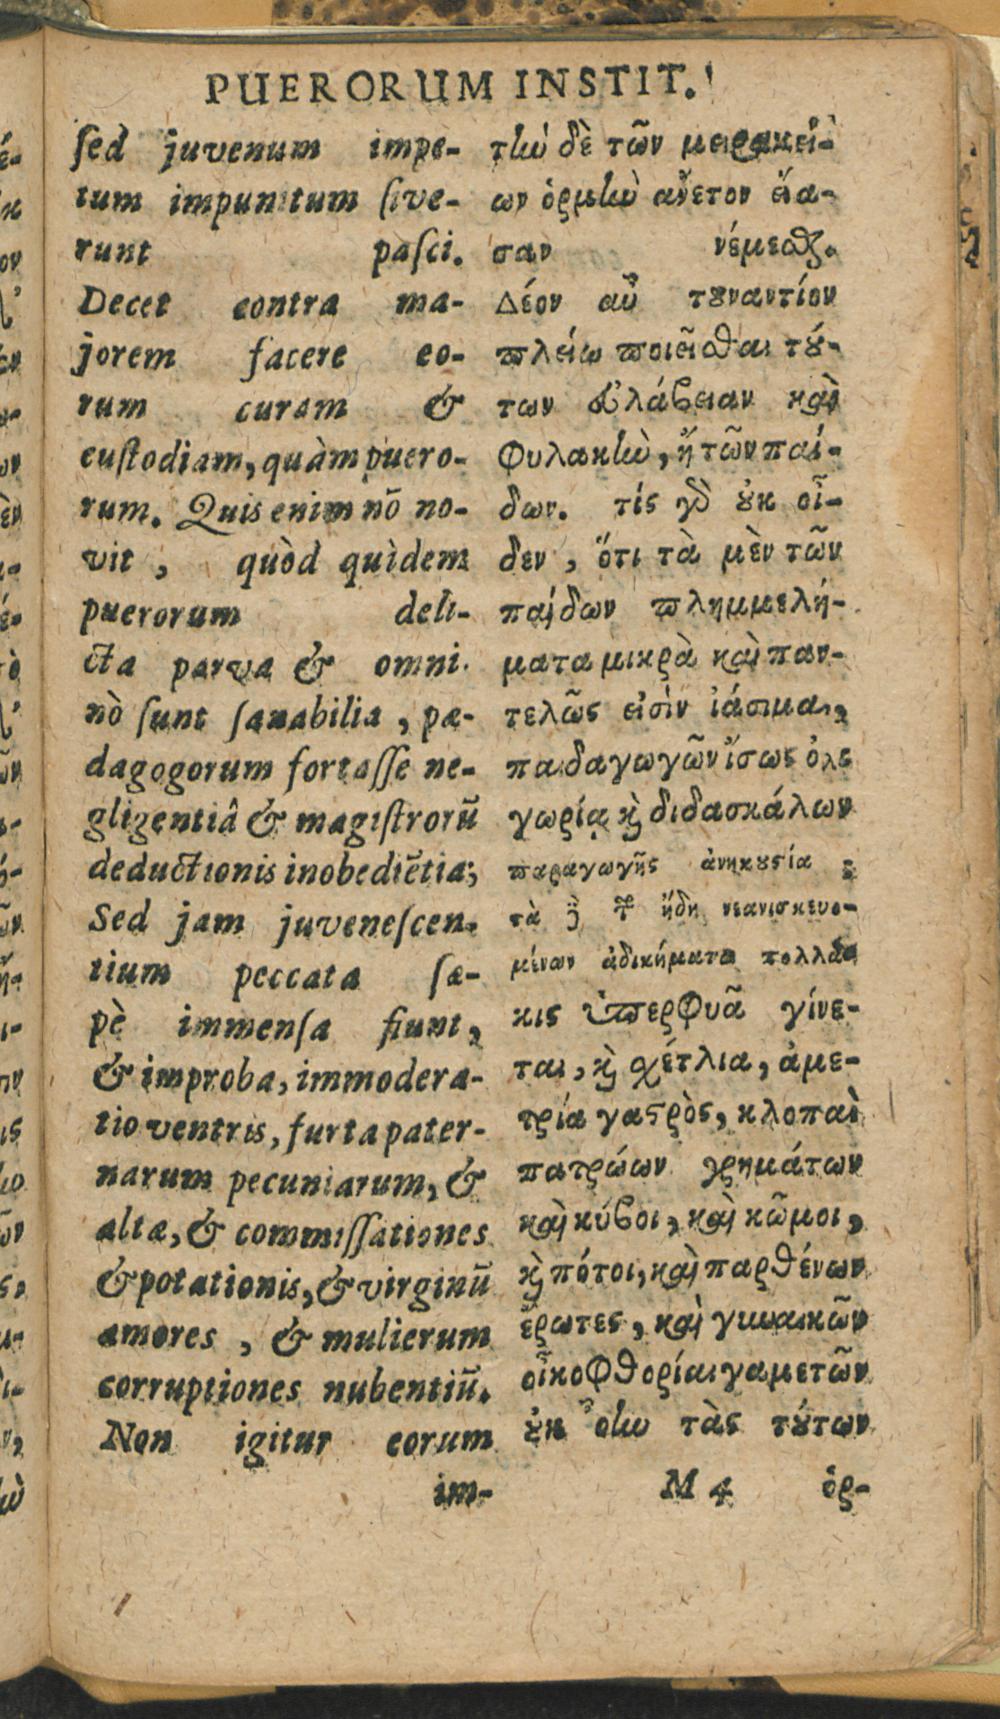 PUERORUM INSTIT.
sed juvenum impe-
tum impunitum sive-
runt pasci.
Decet contra ma-
jorem facere eo-
rum curam &
custodiam, quàm puero-
rum. Quis enim nō no-
vit, quòd quìdem
puerorum deli-
cta parva & omni-
nò sunt sanabilia, pæ-
dagogorum fortasse ne-
gligentiâ & magistrorū
deductionis inobediētia;
Sed jam juvenescen-
tium peccata sæ-
pè immensa fiunt,
& improba, immodera-
tio ventris, furta pater-
narum pecuniarum, &
altæ, & commissationes
& potationis, & virginū
amores, & mulierum
corruptiones nubentiū.
Non igitur eorum
im-
τὴν δὲ τῶν μειρακεί-
ων ὁρμὴν ἄνετον εἴα-
σαν νέμεσθαι.
Δέον αὖ τοὐναντίον
πλείω ποιεῖσθαι τού-
των εὐλάβειαν καὶ
φυλακὴν, ἢ τῶν παί-
δων. τίς γὸ οὐκ οἶ-
δεν, ὅτι τὰ μὲν τῶν
παίδων πλημμελή-
ματα μικρὰ καὶ παν-
τελῶς εἰσὶν ἰάσιμα,
παιδαγωγῶν ἴσως ὀλι
γωρίᾳ κὶ διδασκάλων
παραγωγῆς ἀνηκουσία;
τὰ δὲ τῶν ἤδη νεανισκευο-
μένων ἀδικήματα πολλά
κις ὑπερφυᾶ γίνε-
ται, κὶ σχέτλια, ἀμε-
τρία γαστρὸς, κλοπαὶ
πατρώων χρημάτων
καὶ κύβοι, καὶ κῶμοι,
κὶ πότοι, καὶ παρθένων
ἔρωτες, καὶ γυναικῶν
οἰκοφθορίαι γαμετῶν
οὐκ οὖν τὰς τούτων
M 4 ὁρ-